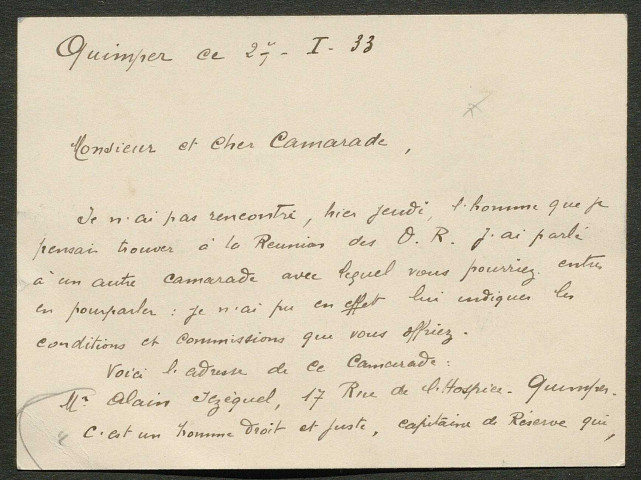 Quimper ce 27 - I - 33
Monsieur et cher Camarade,
Je n'ai pas rencontré, hier jeudi, l'homme que je
pensais trouver à la Reunion des O. R. J'ai parlé
à un autre camarade avec lequel vous pourriez entrer
en pourparler : je n'ai pu en effet lui indiquer les
conditions et commissions que vous offriez.
Voici l'adresse de ce Camarade :
Mr Alain Jézéquel, 17 Rue de l'Hospice - Quimper -
C'est un homme droit et juste, capitaine de Réserve qui,